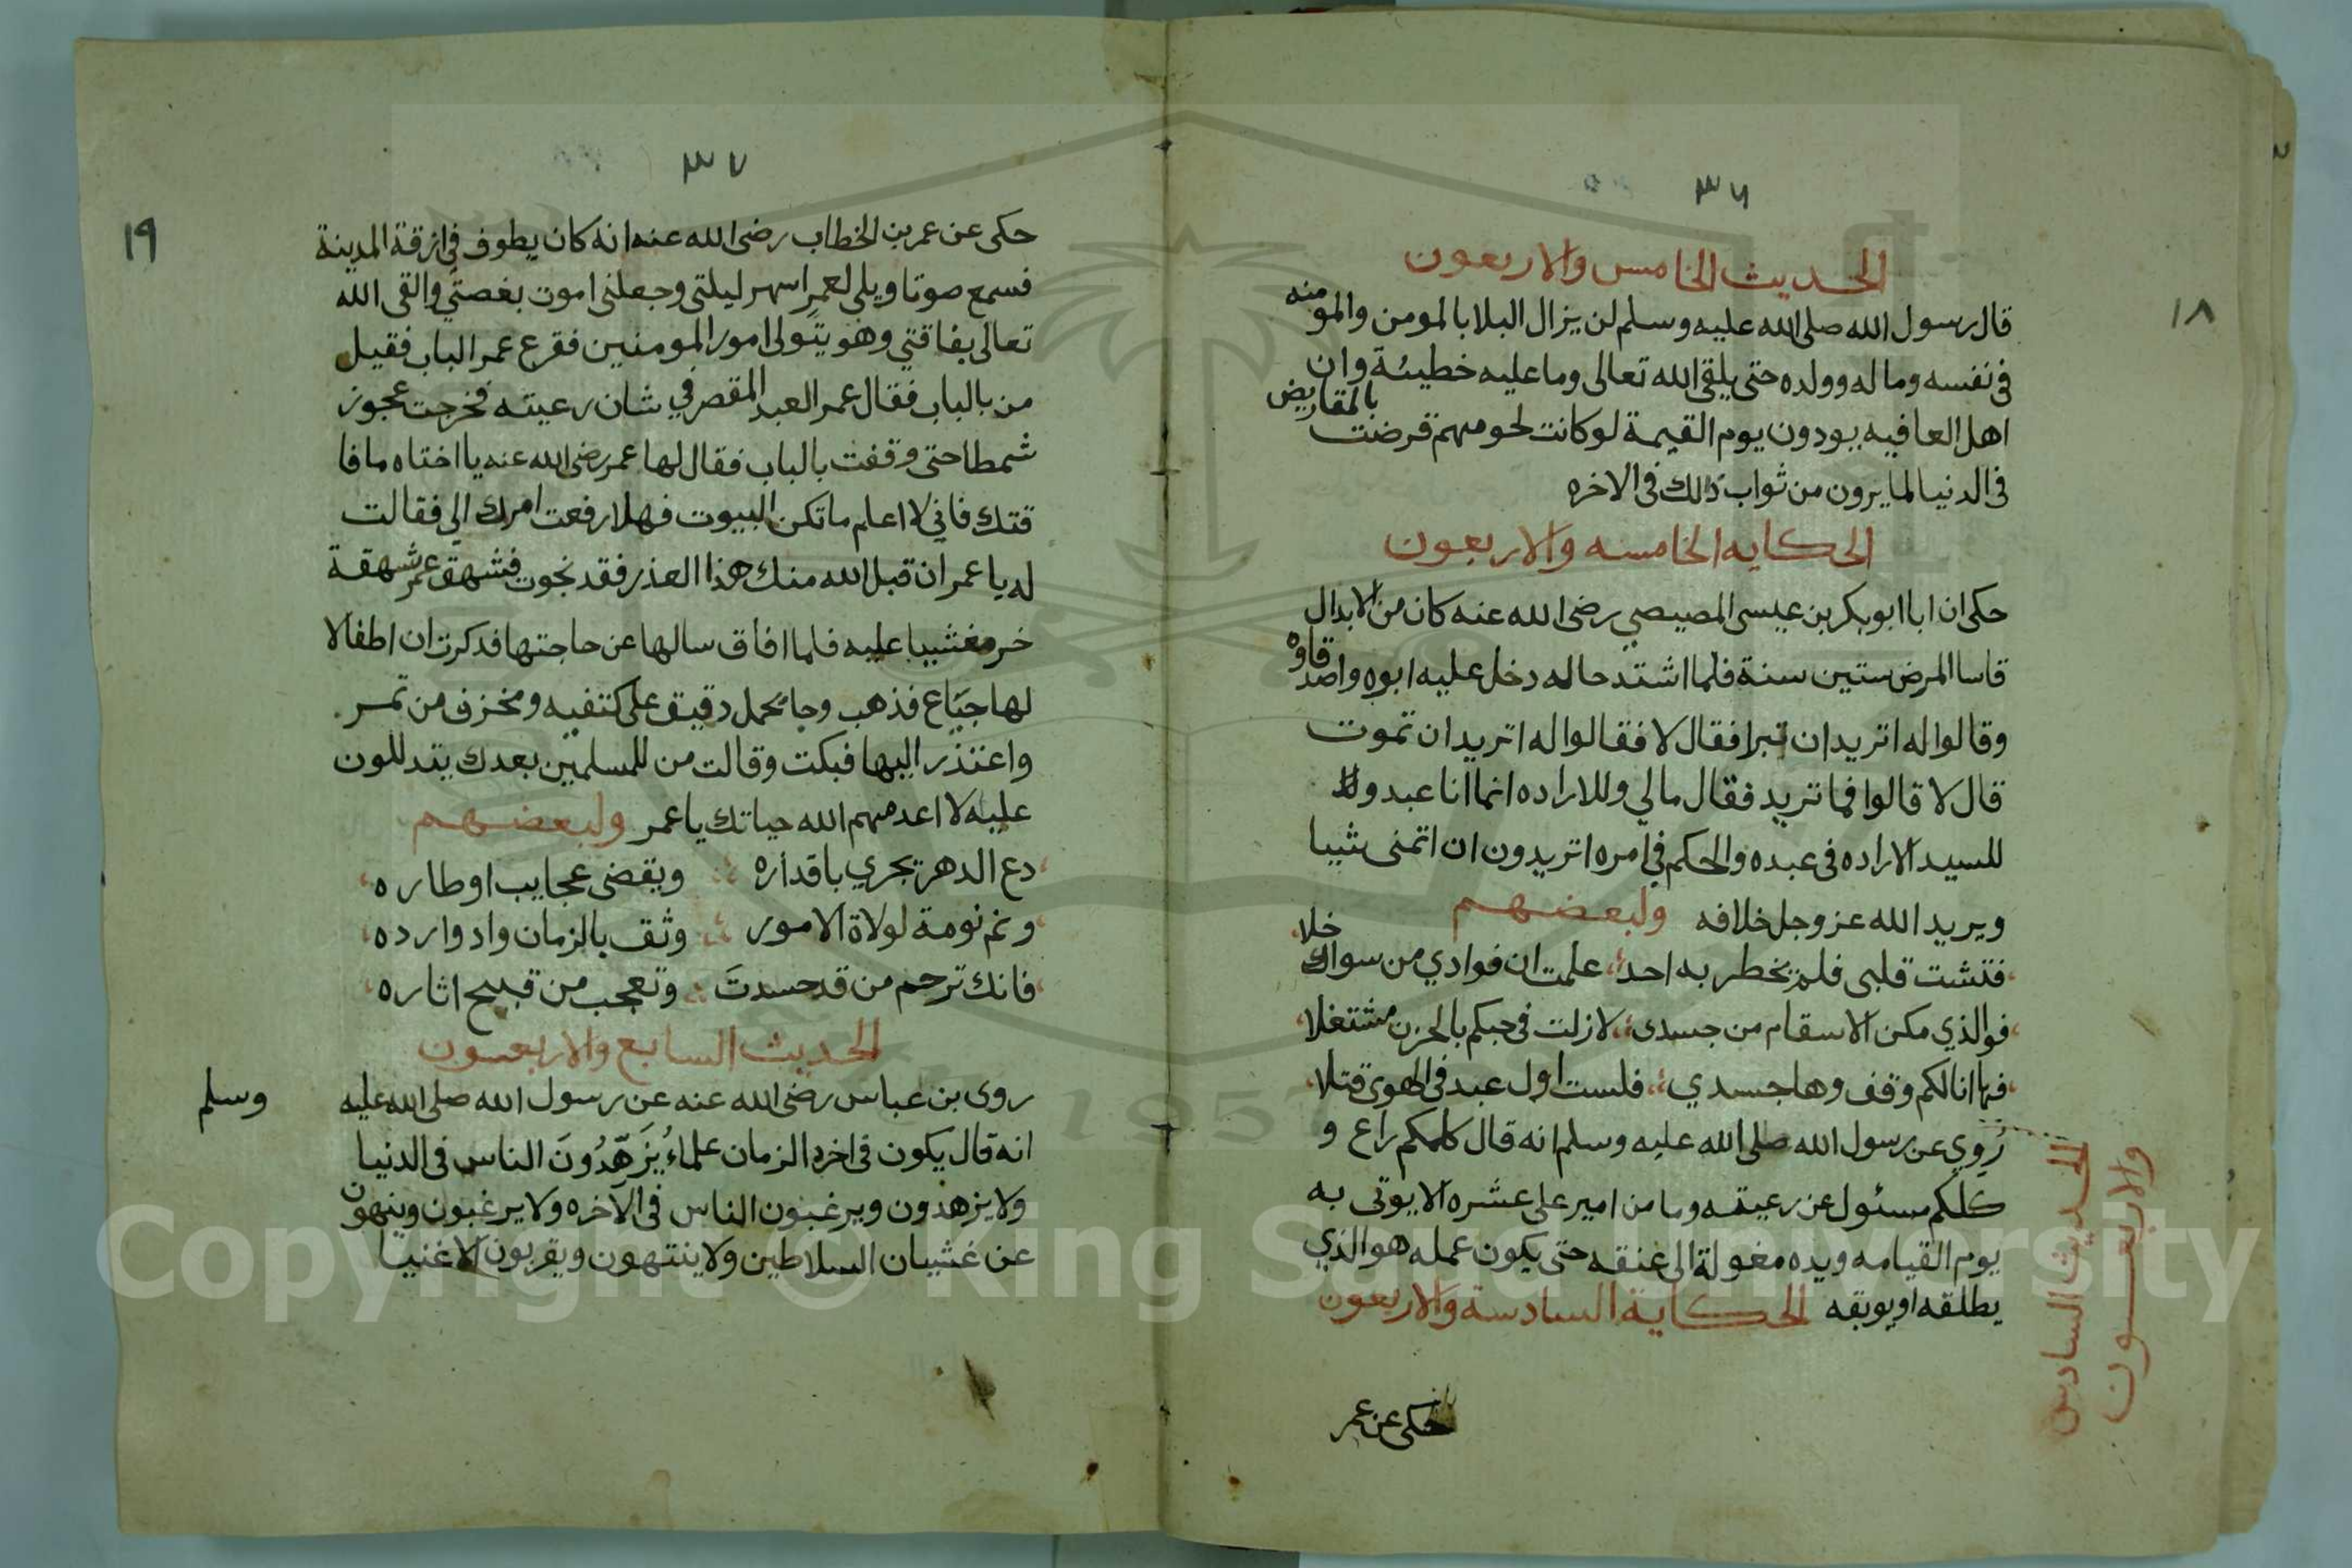 ٣٦
١٨
الحديث الخامس والاربعون
قال رسول الله صلى الله عليه وسلم لن يزال البلا بالمومن والمومنه
فى نفسه وماله وولده حتى يلقى الله تعالى وما عليه خطيئة وان
اهل العافيه يودون يوم القيمة لو كانت لحومهم قرضت بالمقاريض
فى الدنيا لما يرون من ثواب ذالك فى الاخره
الحكايه الخامسه والاربعون
حكى ان ابا ابو بكر بن عيسى المصيصي رضى الله عنه كان من الابدال
قاسا المرض ستين سنة فلما اشتد حاله دخل عليه ابوه واصدقاوه
وقالوا له اتريد ان تبرا فقال لا فقالوا له اتريد ان تموت
قال لا قالوا فما تريد فقال مالي وللاراده انما انا عبد ولا
للسيد الاراده فى عبده والحكم في امره اتريدون ان اتمنى شيا
ويريد الله عز وجل خلافه ولبعضهم
فتشت قلبى فلم يخطر به احد علمت ان فوادي من سواك خلا
فوالذي مكن الاسقام من جسدى لا زلت فى حبكم بالحزن مشتغلا
فها انا لكم وقف وها جسدي فلست اول عبد فى الهوى قتلا
الحديث السادس
والاربعون
رُوي عن رسول الله صلى الله عليه وسلم انه قال كلكم راع و
كلكم مسئول عن رعيته وما من امير على عشره الا يوتى به
يوم القيامه ويده مغولة الى عنقه حتى يكون عمله هو الذي
يطلقه او يوبقه الحكاية السادسة والاربعون
حكى عن عمر
٣٧
١٩
حكى عن عمر بن الخطاب رضى الله عنه انه كان يطوف في ازقة المدينة
فسمع صوتا ويلى لعمر اسهر ليلتى وجعلنى اموت بغصتي والقى الله
تعالى بفاقتي وهو يتولى امور المومنين فقرع عمر الباب فقيل
من بالباب فقال عمر العبد المقصر في شان رعيته فخرجت عجوز
شمطا حتى وقفت بالباب فقال لها عمر رضى الله عنه يا اختاه ما فا
قتك فاني لا اعلم ما تكن البيوت فهلا رفعت امرك الي فقالت
له يا عمر ان قبل الله منك هذا العذر فقد نجوت فشهق عمر شهقة
خر مغشيا عليه فلما افاق سالها عن حاجتها فدكرت ان اطفالا
لها جياع فذهب وجا بحمل دقيق على كتفيه ومخزف من تمر
واعتذر اليها فبكت وقالت من للمسلمين بعدك يتدللون
عليه لا اعدمهم الله حياتك يا عمر ولبعضهم
دع الدهر يجري باقداره ويقضى عجايب اوطاره
ونم نومة لولاة الامور وثق بالزمان وادوارده
فانك ترحم من قد حسدتَ وتعجب من قبيح اثاره
الحديث السابع والاربعون
روى بن عباس رضى الله عنه عن رسول الله صلى الله عليه وسلم
انه قال يكون فى اخره الزمان علماءُ يُزَهّدُونَ الناس فى الدنيا
ولا يزهدون ويرغبون الناس فى الآخره ولا يرغبون وينهون
عن غشيان السلاطين ولا ينتهون ويقربون الاغنيا
Copyright © King Saud University
1957